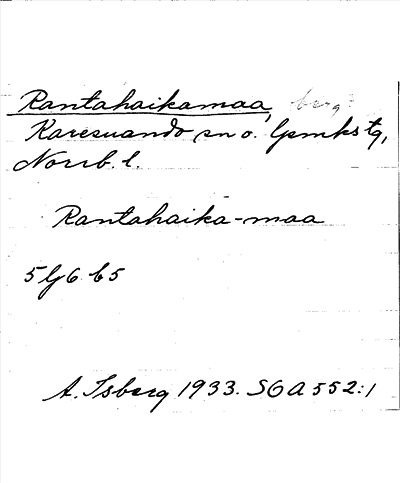 Rantahaikamaa, berg
Karesuando sn o. lpmkstg,
Norrb. l.
Rantahaika-maa
5 G 6 b 5
A. Isberg 1933. SOA 552:1